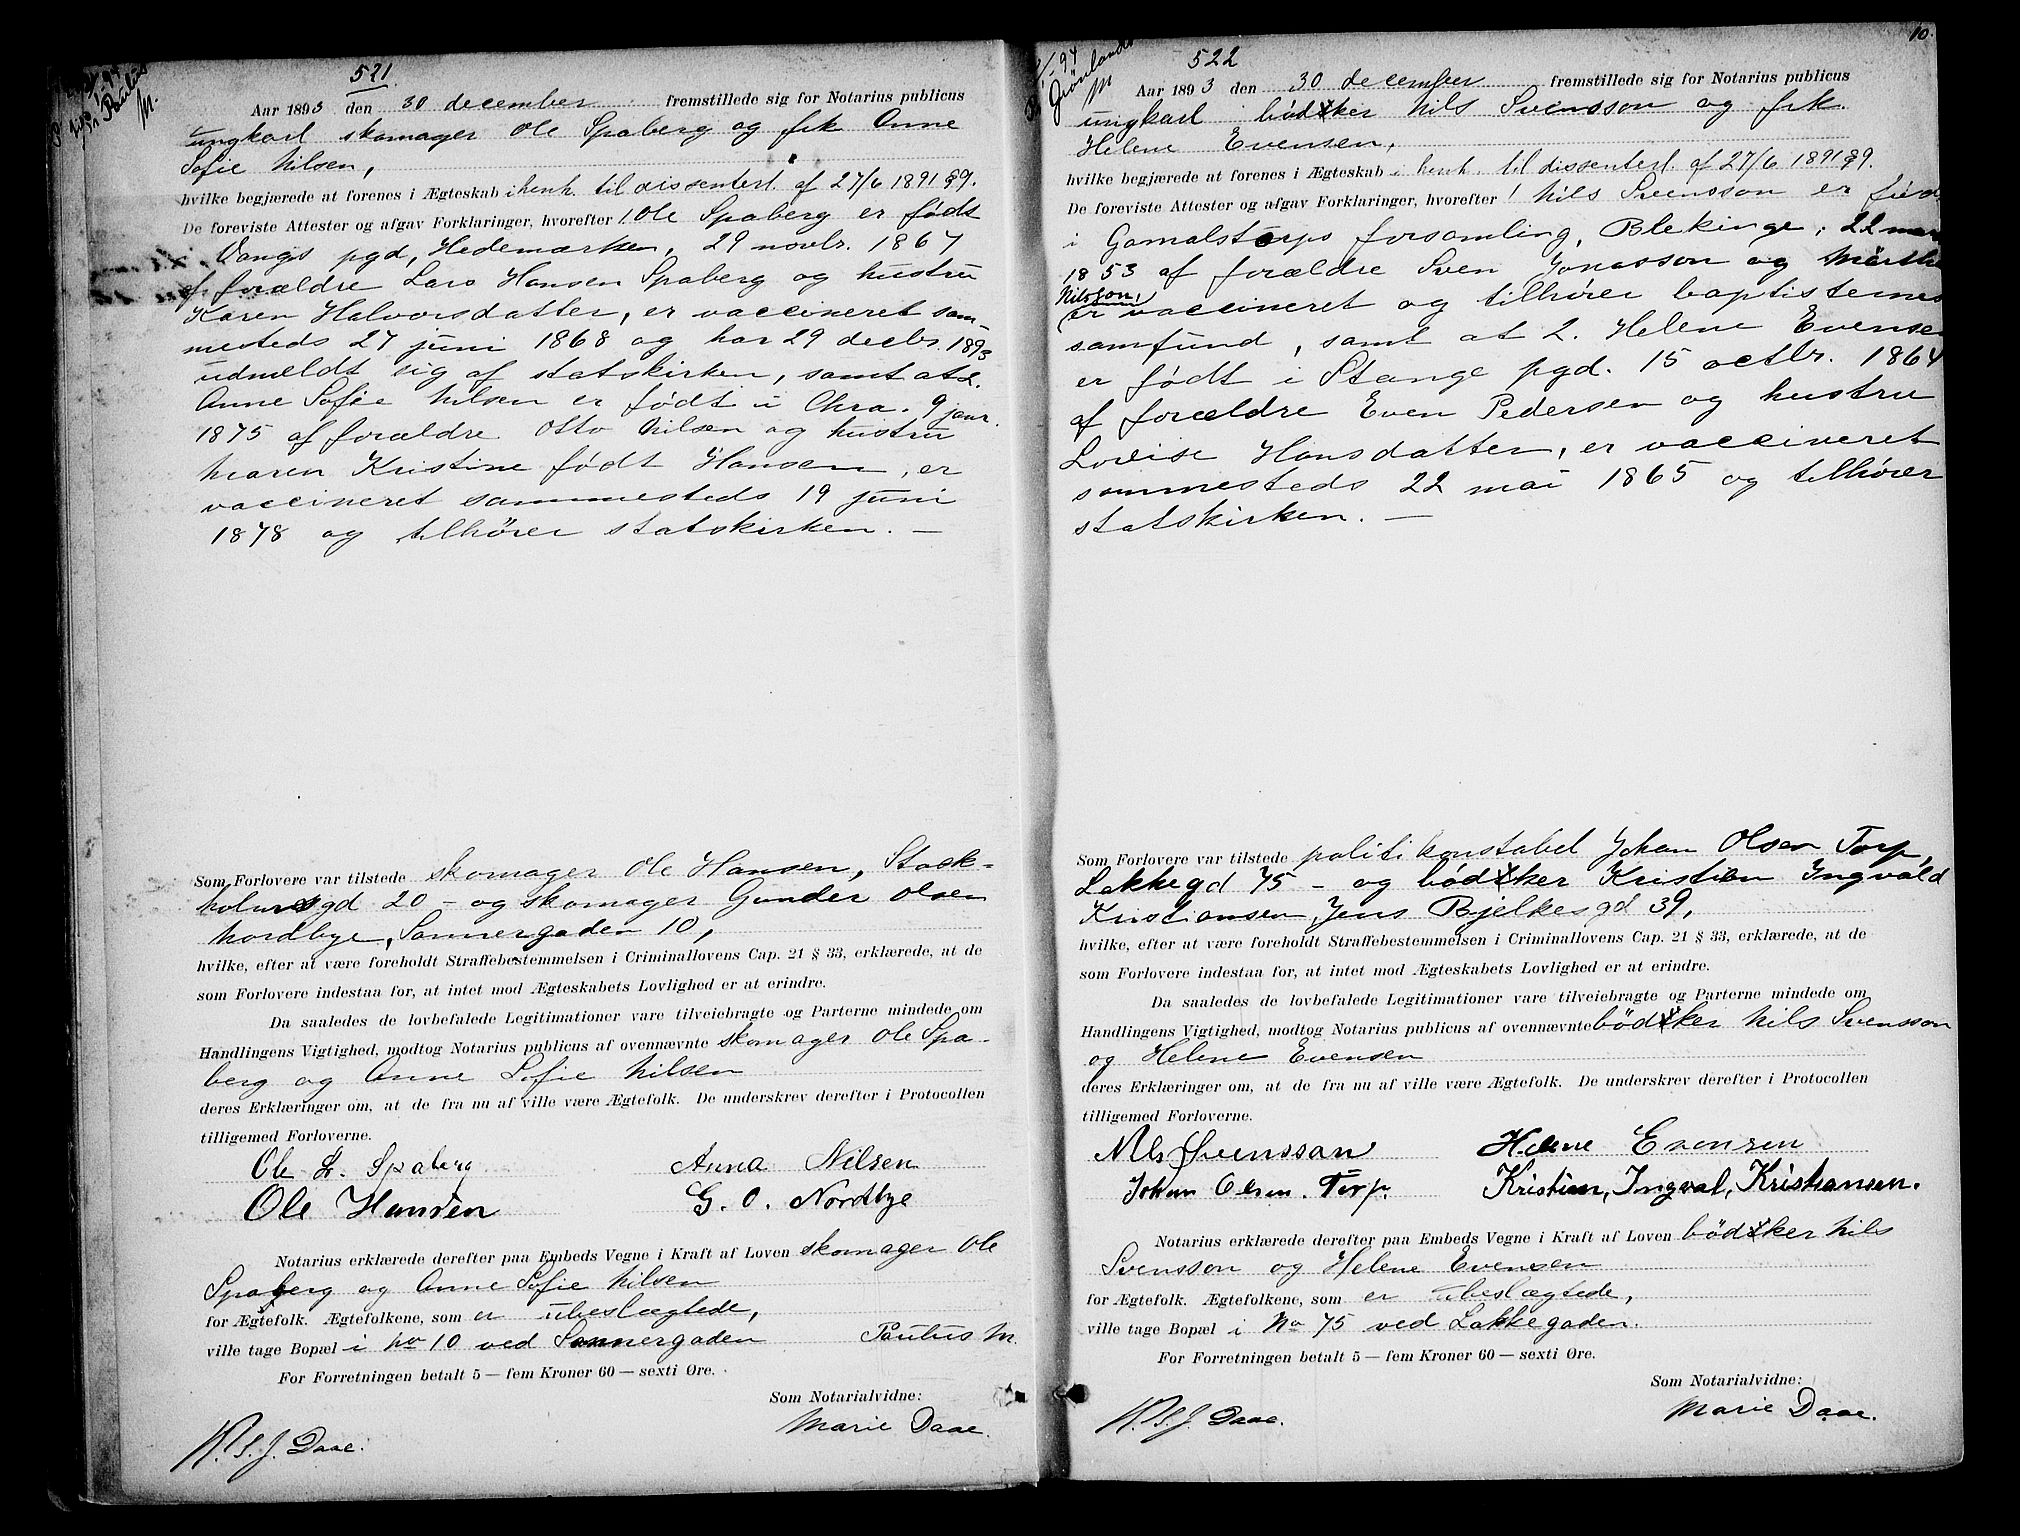 521.
Aar 1893 den 30 december fremstillede sig for Notarius publicus
ungkarl skomager Ole Spaberg og frk Anne
Sofie Nilsen,
hvilke begjærede at forenes i Ægteskab i henh. til dissenterl. af 27/6 1891 §9.
De foreviste Attester og afgav Forklaringer, hvorefter 1 Ole Spaberg er født
i Vangs pgd, Hedemarken, 29 novbr. 1867
af forældre Lars Hansen Spaberg og hustru
Karen Halvorsdatter, er vaccineret sam-
mesteds 27 juni 1868 og har 29 decbr. 1893
udmeldt sig af statskirken, samt at 2.
Anne Sofie Nilsen er født i Chra. 9 janr.
1875 af forældre Otto Nilsen og hustru
Maren Kristine født Hansen, er
vaccineret sammesteds 19 juni
1878 og tilhører statskirken. —
Som Forlovere var tilstede skomager Ole Hansen, Stock-
holmsgd 20 – og skomager Gunder Olsen
Nordbye, Sannergaden 10,
hvilke, efter at være foreholdt Straffebestemmelsen i Criminallovens Cap. 21 § 33, erklærede, at de
som Forlovere indestaa for, at intet mod Ægteskabets Lovlighed er at erindre.
Da saaledes de lovbefalede Legitimationer vare tilveiebragte og Parterne mindede om
Handlingens Vigtighed, modtog Notarius publicus af ovennævnte skomager Ole Spa-
berg og Anne Sofie Nilsen
deres Erklæringer om, at de fra nu af ville være Ægtefolk. De underskrev derefter i Protocollen
tilligemed Forloverne.
Ole L. Spaberg Anna Nilsen
Ole Hansen G. O. Nordbye
Notarius erklærede derefter paa Embeds Vegne i Kraft af Loven skomager Ole
Spaberg og Anne Sofie Nilsen
for Ægtefolk. Ægtefolkene, som er ubeslægtede,
ville tage Bopæl i No 10 ved Sannergaden Paulus M.
For Forretningen betalt 5 — fem Kroner 60 — sexti Øre.
Som Notarialvidne:
Marie Daae.
Daae.
10.
522
Grønlands
M
Aar 1893 den 30 december fremstillede sig for Notarius publicus
ungkarl bødker Nils Svensson og frk.
Helene Evensen,
hvilke begjærede at forenes i Ægteskab i henh. til dissenterl. af 27/6 1891 §9.
De foreviste Attester og afgav Forklaringer, hvorefter 1 Nils Svensson er født
i Gamalstorps forsamling, Blekinge, 22 mars
1853 af forældre Sven Jonasson og Märtha
Nilsson,
er vaccineret og tilhører baptisternes
samfund, samt at 2. Helene Evensen
er født i Stange pgd. 15 octbr. 1864
af forældre Even Pedersen og hustru
Lovise Hansdatter, er vaccineret
sammesteds 22 mai 1865 og tilhører
statskirken. —
Som Forlovere var tilstede politikonstabel Johan Olsen Torp,
Lakkegd 75 – og bødker Kristian Ingvald
Kristiansen, Jens Bjelkesgd 39,
hvilke, efter at være foreholdt Straffebestemmelsen i Criminallovens Cap. 21 § 33, erklærede, at de
som Forlovere indestaa for, at intet mod Ægteskabets Lovlighed er at erindre.
Da saaledes de lovbefalede Legitimationer vare tilveiebragte og Parterne mindede om
Handlingens Vigtighed, modtog Notarius publicus af ovennævnte bødker Nils Svensson
og Helene Evensen
deres Erklæringer om, at de fra nu af ville være Ægtefolk. De underskrev derefter i Protocollen
tilligemed Forloverne.
Nils Svensson Helene Evensen
Johan Olsen. Torp. Kristian, Ingval, Kristiansen.
Notarius erklærede derefter paa Embeds Vegne i Kraft af Loven bødker Nils
Svensson og Helene Evensen
for Ægtefolk. Ægtefolkene, som er ubeslægtede,
ville tage Bopæl i No 75 ved Lakkegaden.
For Forretningen betalt 5 — fem Kroner 60 — sexti Øre.
Som Notarialvidne:
Marie Daae.
Daae.